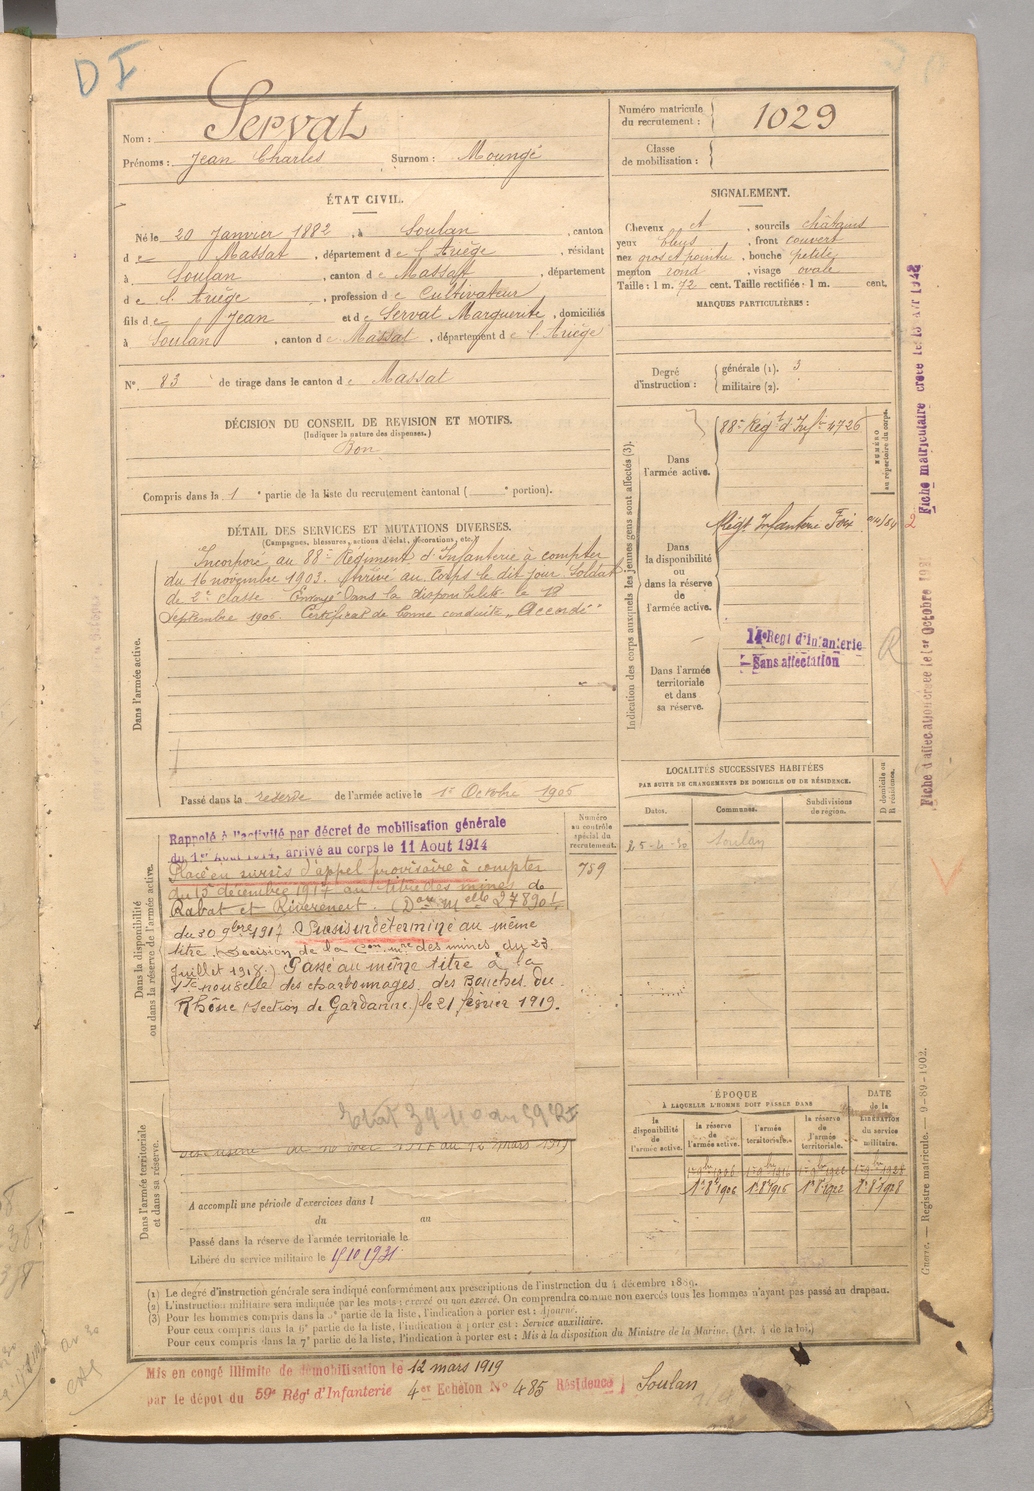 DI
Nom : Servat
Prénoms : Jean Charles Surnom : Moungé
Numéro matricule du recrutement : 1029
Classe de mobilisation :
ÉTAT CIVIL.
Né le 20 Janvier 1882, à Soulan, canton
d e Massat, département d e l'Ariège, résidant
à Soulan, canton d e Massat, département
d e l'Ariège, profession d e Cultivateur
fils d e Jean et d e Servat Marguerite, domiciliés
à Soulan, canton d e Massat, département d e l'Ariège
N° 83 de tirage dans le canton d e Massat
SIGNALEMENT.
Cheveux et, sourcils châtains
yeux bleus, front couvert
nez gros et pointu, bouche petite
menton rond, visage ovale
Taille : 1 m. 72 cent. Taille rectifiée : 1 m. cent.
MARQUES PARTICULIÈRES :
Degré d'instruction : générale (1). 3
militaire (2).
DÉCISION DU CONSEIL DE REVISION ET MOTIFS.
(Indiquer la nature des dispenses.)
Bon
Compris dans la 1e partie de la liste du recrutement cantonal ( e portion).
DÉTAIL DES SERVICES ET MUTATIONS DIVERSES.
(Campagnes, blessures, actions d'éclat, décorations, etc.)
Dans l'armée active.
Incorporé au 88e Régiment d'Infanterie à compter
du 16 novembre 1903. Arrivé au Corps le dit jour. Soldat
de 2e classe Envoyé dans la disponibilité le 18
Septembre 1906. Certificat de bonne conduite "Accordé"
Passé dans la reserve de l'armée active le 1er Octobre 1906
Indication des corps auxquels les jeunes gens sont affectés (3).
NUMÉRO au répertoire du corps.
Dans l'armée active.
88e Régt d'Infie 4726
Dans la disponibilité ou dans la réserve de l'armée active.
Régt Infanterie Foix
Dans l'armée territoriale et dans sa réserve.
14e Régt d'infanterie
Sans affectation
LOCALITÉS SUCCESSIVES HABITÉES
PAR SUITE DE CHANGEMENTS DE DOMICILE OU DE RÉSIDENCE.
Dates. Communes. Subdivisions de région. D domicile ou R résidence.
Soulan
Dans la disponibilité ou dans la réserve de l'armée active.
Numéro au contrôle spécial du recrutement.
759
Rappelé à l'activité par décret de mobilisation générale
du 1er Août 1914, arrivé au corps le 11 Aout 1914
Placé en sursis d'appel provisoire à compter
du 15 décembre 1917 au titre des mines de
Rabat et
du 30 9bre 1917 Sursis indéterminé au même
titre (Décision de la des mines du 23
Juillet 1918.) Passé au même titre à la
des charbonnages des Bouches du
Rhône (section de Gardanne) le 21 février 1919.
Dans l'armée territoriale et dans sa réserve.
A accompli une période d'exercices dans l
du au
Passé dans la réserve de l'armée territoriale le
Libéré du service militaire le 15/10 1931
ÉPOQUE
À LAQUELLE L'HOMME DOIT PASSER DANS
la disponibilité de l'armée active. la réserve de l'armée active. l'armée territoriale. la réserve de l'armée territoriale.
DATE de la LIBÉRATION du service militaire.
1er 8bre 1906 1er 8bre 1916 1er 8bre 1922 1er 8bre 1928
(1) Le degré d'instruction générale sera indiqué conformément aux prescriptions de l'instruction du 4 décembre 1889.
(2) L'instruction militaire sera indiquée par les mots : exercé ou non exercé. On comprendra comme non exercés tous les hommes n'ayant pas passé au drapeau.
(3) Pour les hommes compris dans la 5e partie de la liste, l'indication à porter est : Ajourné.
Pour ceux compris dans la 6e partie de la liste, l'indication à porter est : Service auxiliaire.
Pour ceux compris dans la 7e partie de la liste, l'indication à porter est : Mis à la disposition du Ministre de la Marine. (Art. 4 de la loi.)
Mis en congé illimité de démobilisation le 12 mars 1919
par le dépôt du 59e Régt d'Infanterie 4e Echelon N° 485 Résidence Soulan
Guerre. — Registre matricule. — 9-89-1902.
Fiche matriculaire créée le
Fiche d'affectation créée le 1er Octobre